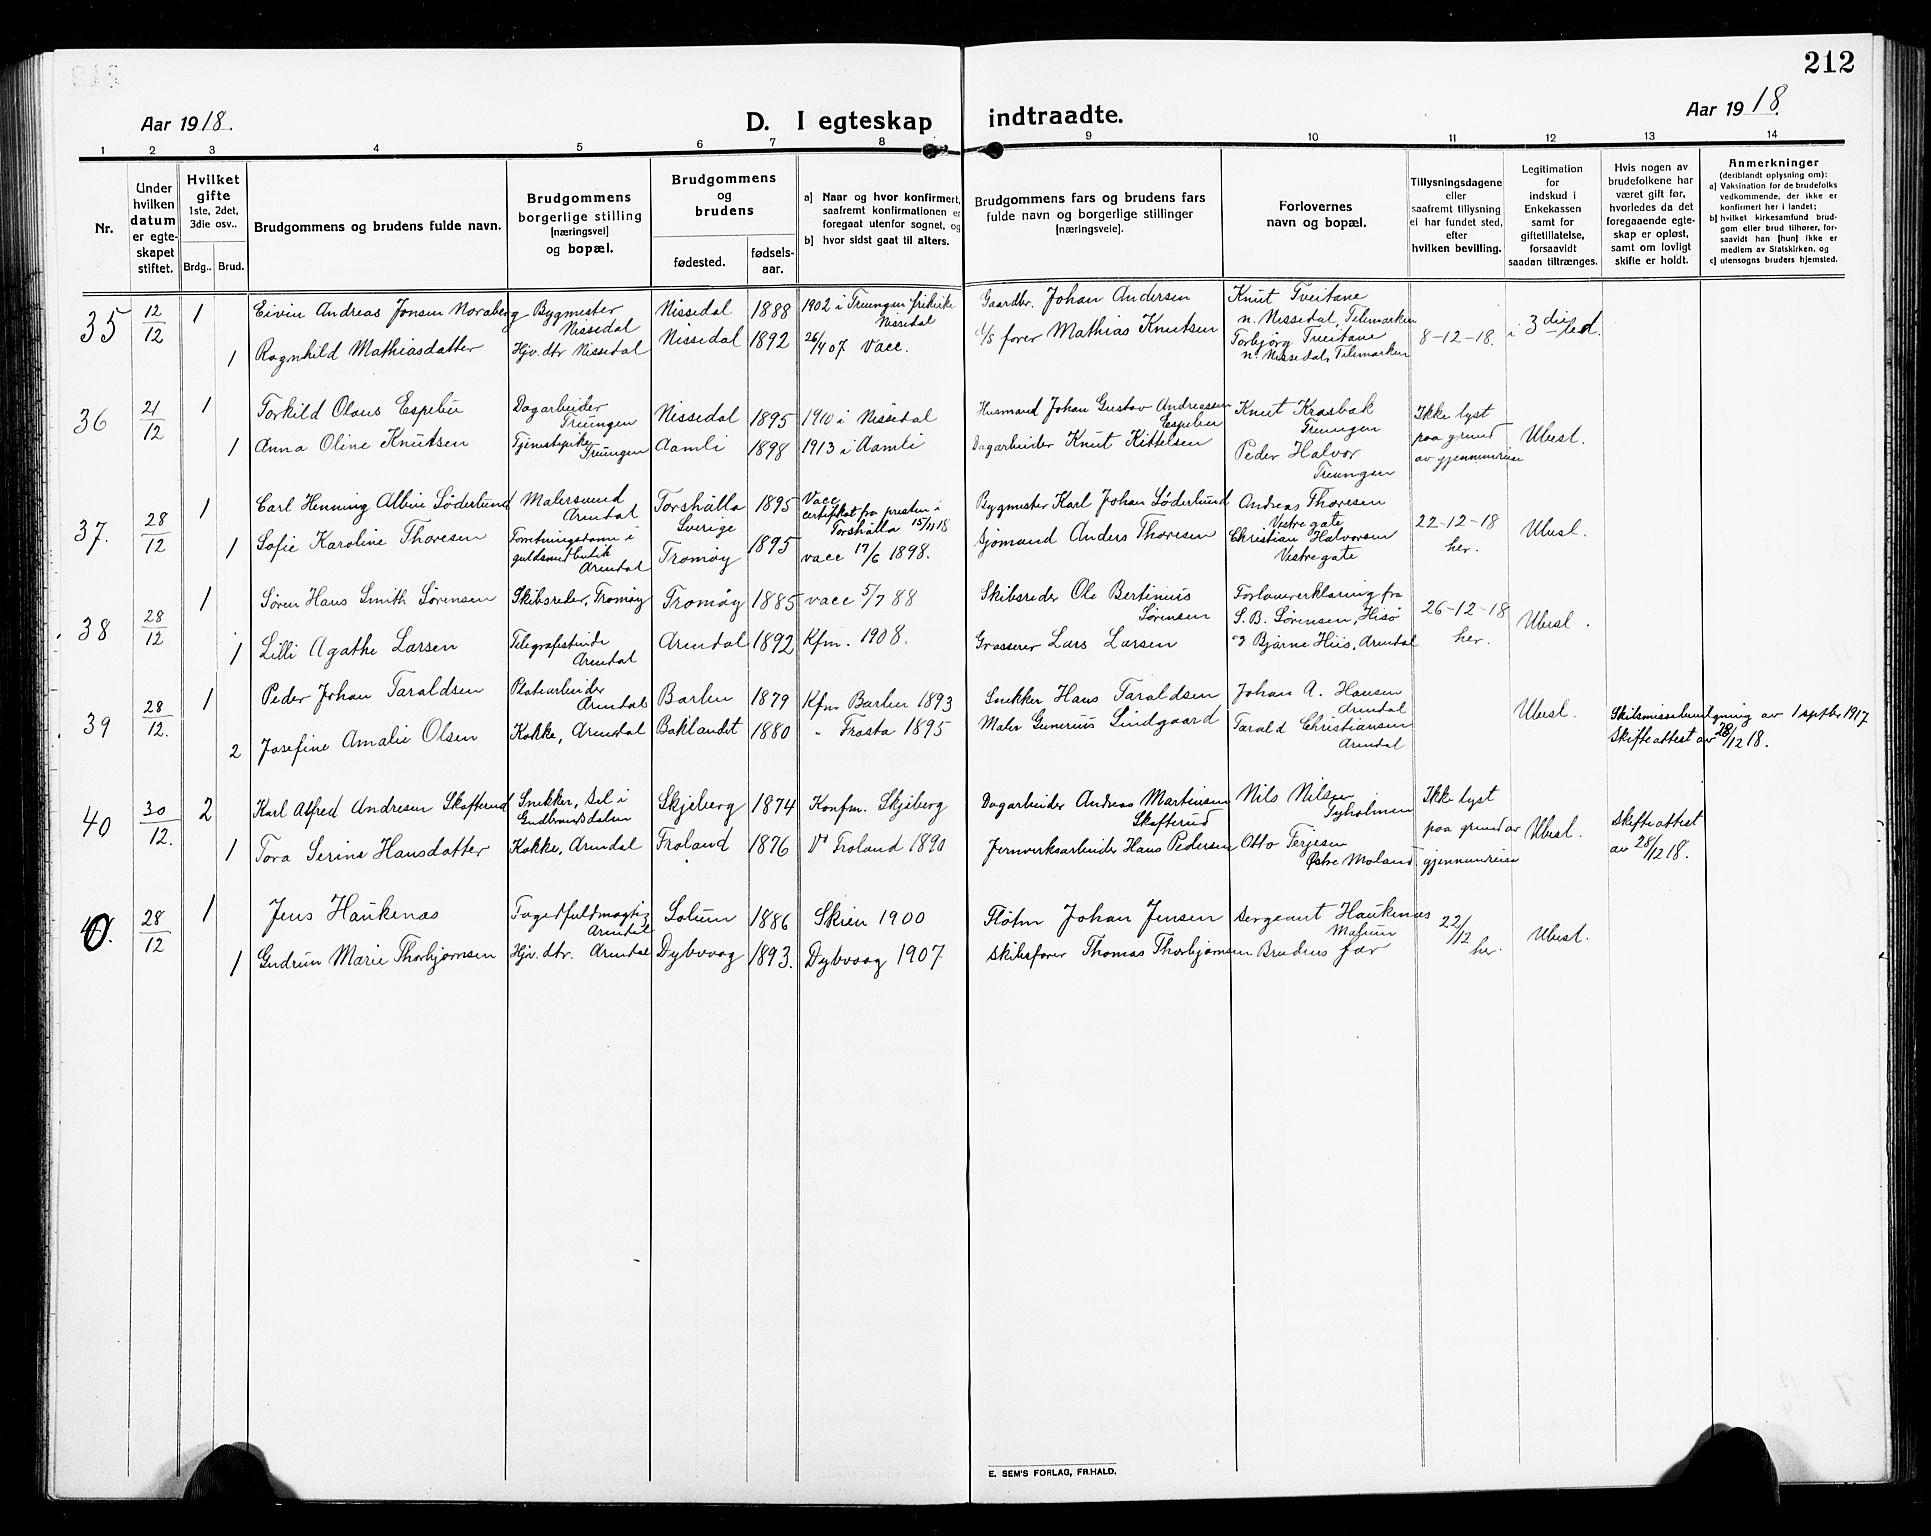 212
Aar 1918.
D. I egteskap indtraadte.
Aar 1918.
1 2 3 4 5 6 7 8 9 10 11 12 13 14
Nr.
Under hvilken datum er egte-skapet stiftet.
Hvilket gifte 1ste, 2det, 3die osv..
Brdg.. Brud.
Brudgommens og brudens fulde navn.
Brudgommens borgerlige stilling [næringsvei] og bopæl.
Brudgommens og brudens
fødested. fødsels-aar.
a) Naar og hvor konfirmert, saafremt konfirmationen er foregaat utenfor sognet, og
b) hvor sidst gaat til alters.
Brudgommens fars og brudens fars fulde navn og borgerlige stillinger [næringsveie].
Forlovernes navn og bopæl.
Tillysningsdagene eller saafremt tillysning ei har fundet sted, efter hvilken bevilling.
Legitimation for indskud i Enkekassen samt for giftetillatelse, forsaavidt saadan tiltrænges.
Hvis nogen av brudefolkene har været gift før, hvorledes da det foregaaende egte-skap er opløst, samt om lovligt skifte er holdt.
Anmerkninger (deriblandt oplysning om):
a) Vaksination for de brudefolks vedkommende, der ikke er konfirmert her i landet;
b) hvilket kirkesamfund brud-gom eller brud tilhører, for-saavidt han [hun] ikke er medlem av Statskirken, og
c) utensogns bruders hjemsted.
35 12/12 1 Eivin Andreas Jonsen Noraberg Bygmester Nissedal Nissedal 1888 1902 i Treungen frikirke Nissedal Gaardbr. Johan Andersen Knut Tveitane n. Nissedal, Telemarken
1 Ragnhild Mathiasdatter Hjv. dtr Nissedal Nissedal 1892 26/4 07 Vacc. fører Mathias Knutsen Torbjørg Tveitane n. Nissedal, Telemarken 8-12-18. i 3die led.
36 21/12 1 Torkild Olaus Espelien Dagarbeider Treungen Nissedal 1895 1910 i Nissedal Husmand Johan Gustav Andreassen Espelien Knut Krasbak Treungen Ikke lyst paa grund av gjennemreise
1 Anna Oline Knutsen Tjenestepike Treungen Aamli 1898 1913 i Aamli Dagarbeider Knut Kittelsen Peder Halvor Treungen Ubesl.
37. 28/12 1 Carl Henning Albin Søderlund Malersvend Arendal Torshälla Sverige 1895 Vacc. certifikat fra presten i Torshälla 15/11 18 Bygmester Karl Johan Søderlund Andreas Thoresen Vestre gate 22-12-18 her. Ubesl.
1 Sofie Karoline Thoresen Forretningsdame i guldsmed butik Arendal Tromøy 1895 vacc 17/6 1898. Sjømand Anders Thoresen Christian Halvorsen Vestre gate
38 28/12 1 Søren Hans Smith Sørensen Skibsreder, Tromøy Tromøy 1885 vacc 5/7 88 Skibsreder Ole Bertinius Sørensen Forlovererklæring fra S. B. Sørensen, Hisø 26-12-18 her. Ubesl.
1 Lilli Agathe Larsen Telegrafistinde Arendal Arendal 1892 Kfm. 1908. Grosserer Lars Larsen og Bjarne Hiis, Arendal
39 28/12. 1 Peder Johan Taraldsen Platearbeider Arendal Barbu 1879 Kfm. Barbu 1893 Snekker Hans Taraldsen Johan A. Hansen Arendal Ubesl.
2 Josefine Amalie Olsen Kokke, Arendal Baklandet 1880 " Frosta 1895 Maler Gunerius Lindgaard Tarald Christiansen Arendal Skilsmissebevilgning av 1 septbr 1917 Skifteattest av 28/12 18.
40 30/12. 2 Karl Alfred Andresen Skofterud Snekker, Sel i Gudbrandsdalen Skjeberg 1874 Konfm. Skjeberg Dagarbeider Andreas Martinsen Skofterud Nils Nilsen Tyholmen Ikke lyst paa grund av gjennemreise Ubesl. Skifteattest av 28/12 18.
1 Tora Serine Hansdatter Kokke, Arendal Froland 1876 Froland 1890 Jernverksarbeider Hans Pedersen Otto Terjesen Østre Moland
28/12 1 Jens Haukenæs Fogedfuldmægtig Arendal Solum 1886 Skien 1900 Fløtm Johan Jensen Sergeant Haukenæs 22/12 her. Ubesl.
1 Gudrun Marie Thorbjørnsen Hjv. dtr. Arendal Dybvaag 1893. Dybvaag 1907. Skibsfører Thomas Thorbjørnsen Brudens far
E. SEM'S FORLAG, FR.HALD.